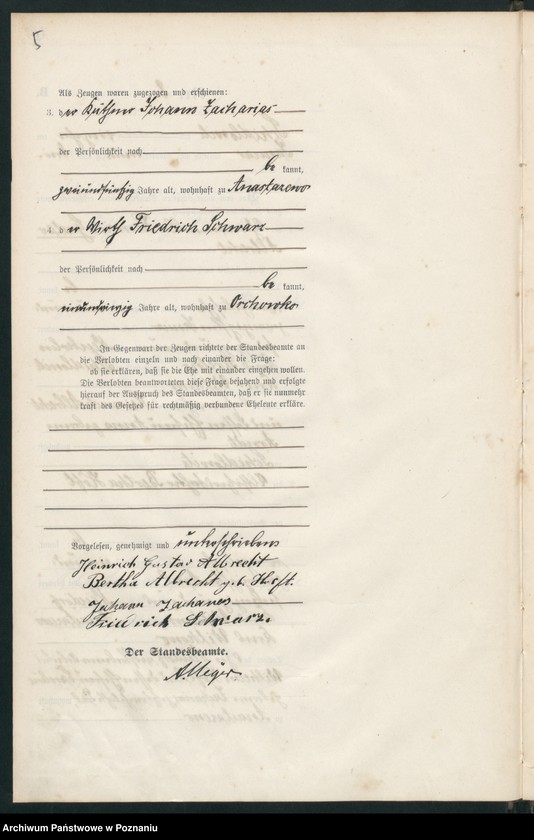 5
Als Zeugen waren zugezogen und erschienen:
3. der Käthner Johann Zacharias
der Persönlichkeit nach
be kannt,
zweiundfünfzig Jahre alt, wohnhaft zu Anastazewo
4. der Wirth Friedrich Schwarz
der Persönlichkeit nach
be kannt,
Jahre alt, wohnhaft zu Orchowko
In Gegenwart der Zeugen richtete der Standesbeamte an
die Verlobten einzeln und nach einander die Frage:
ob sie erklären, daß sie die Ehe mit einander eingehen wollen.
Die Verlobten beantworteten diese Frage bejahend und erfolgte
hierauf der Ausspruch des Standesbeamten, daß er sie nunmehr
kraft des Gesetzes für rechtmäßig verbundene Eheleute erkläre.
Vorgelesen, genehmigt und unterschrieben
Heinrich Gustav Albrecht
Bertha Albrecht geb.
Johann Zacharias
Friedrich Schwarz
Der Standesbeamte.
Archiwum Państwowe w Poznaniu